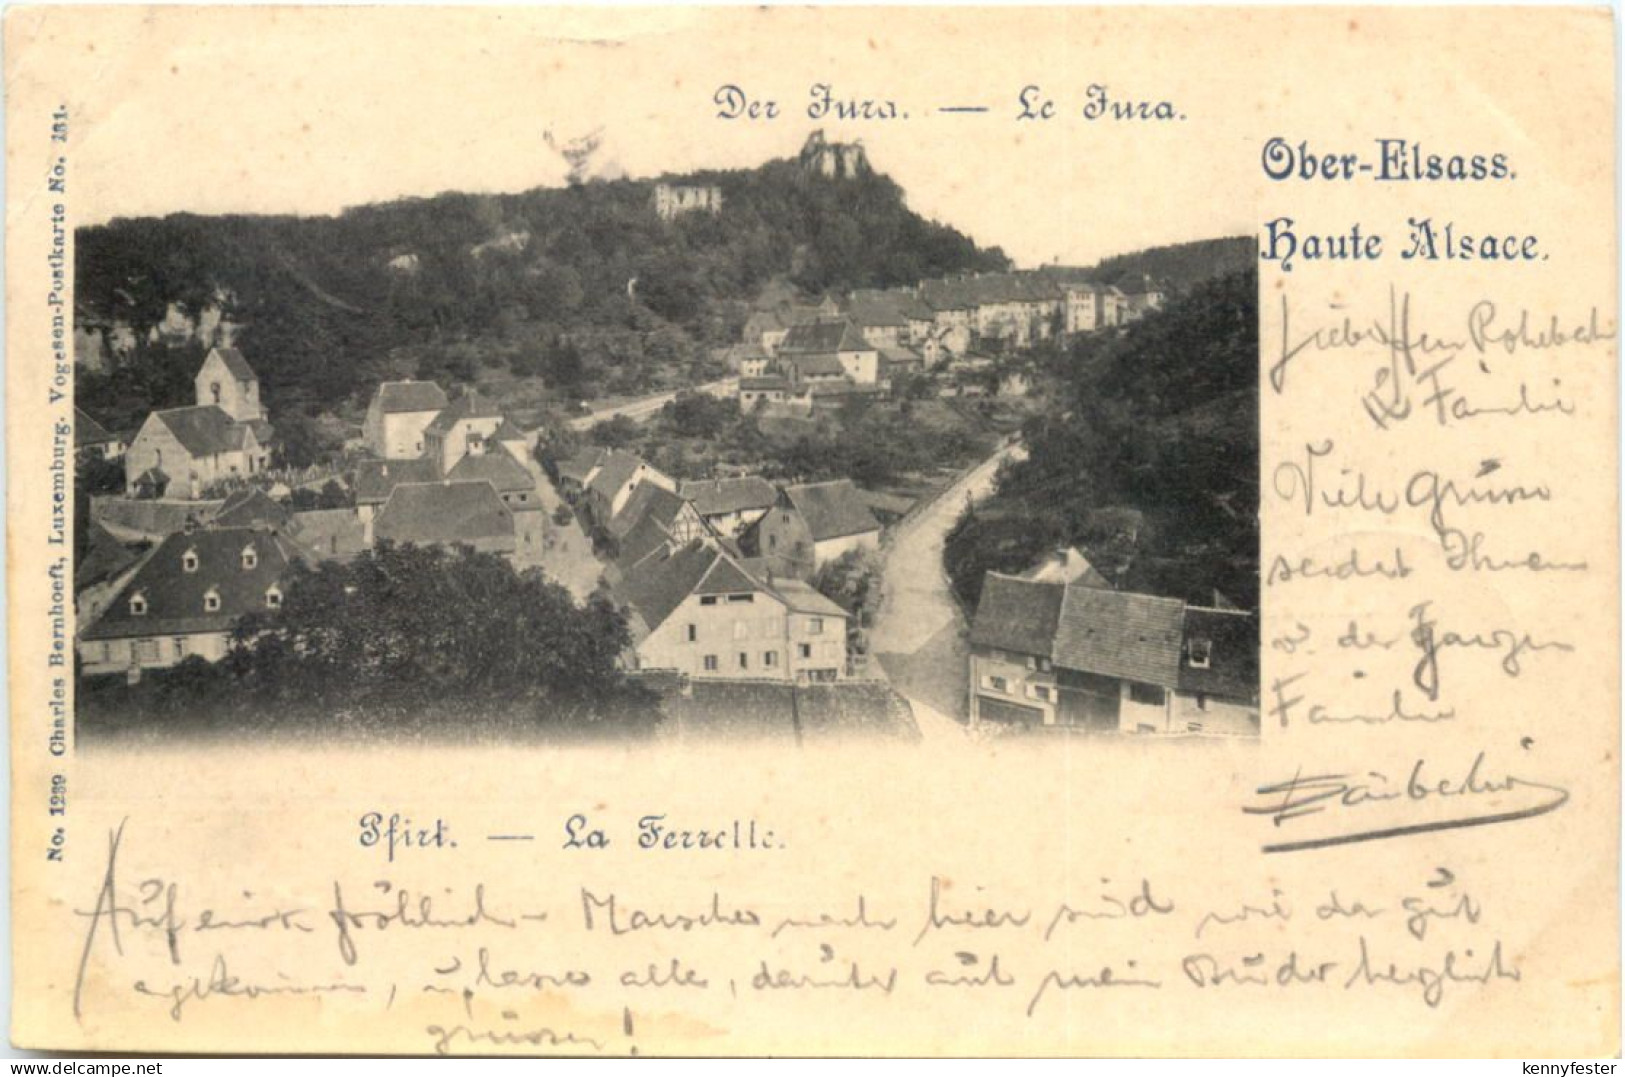 Der Jura. — Le Jura.
Ober-Elsass.
Haute Alsace.
No. 1239 Charles Bernhoeft, Luxemburg. Vogesen-Postkarte No. 131.
Pfirt. — La Ferrette.
Lieber Herr
& Familie
Viele Grüsse
sendet Ihnen
u. der ganzen
Familie
Auf einem fröhlichen Marsche nach hier sind wir da gut
angekommen, u. lasse alle, darunter auch mein Bruder herzlich
grüssen!
delcampe.net
kennyfester